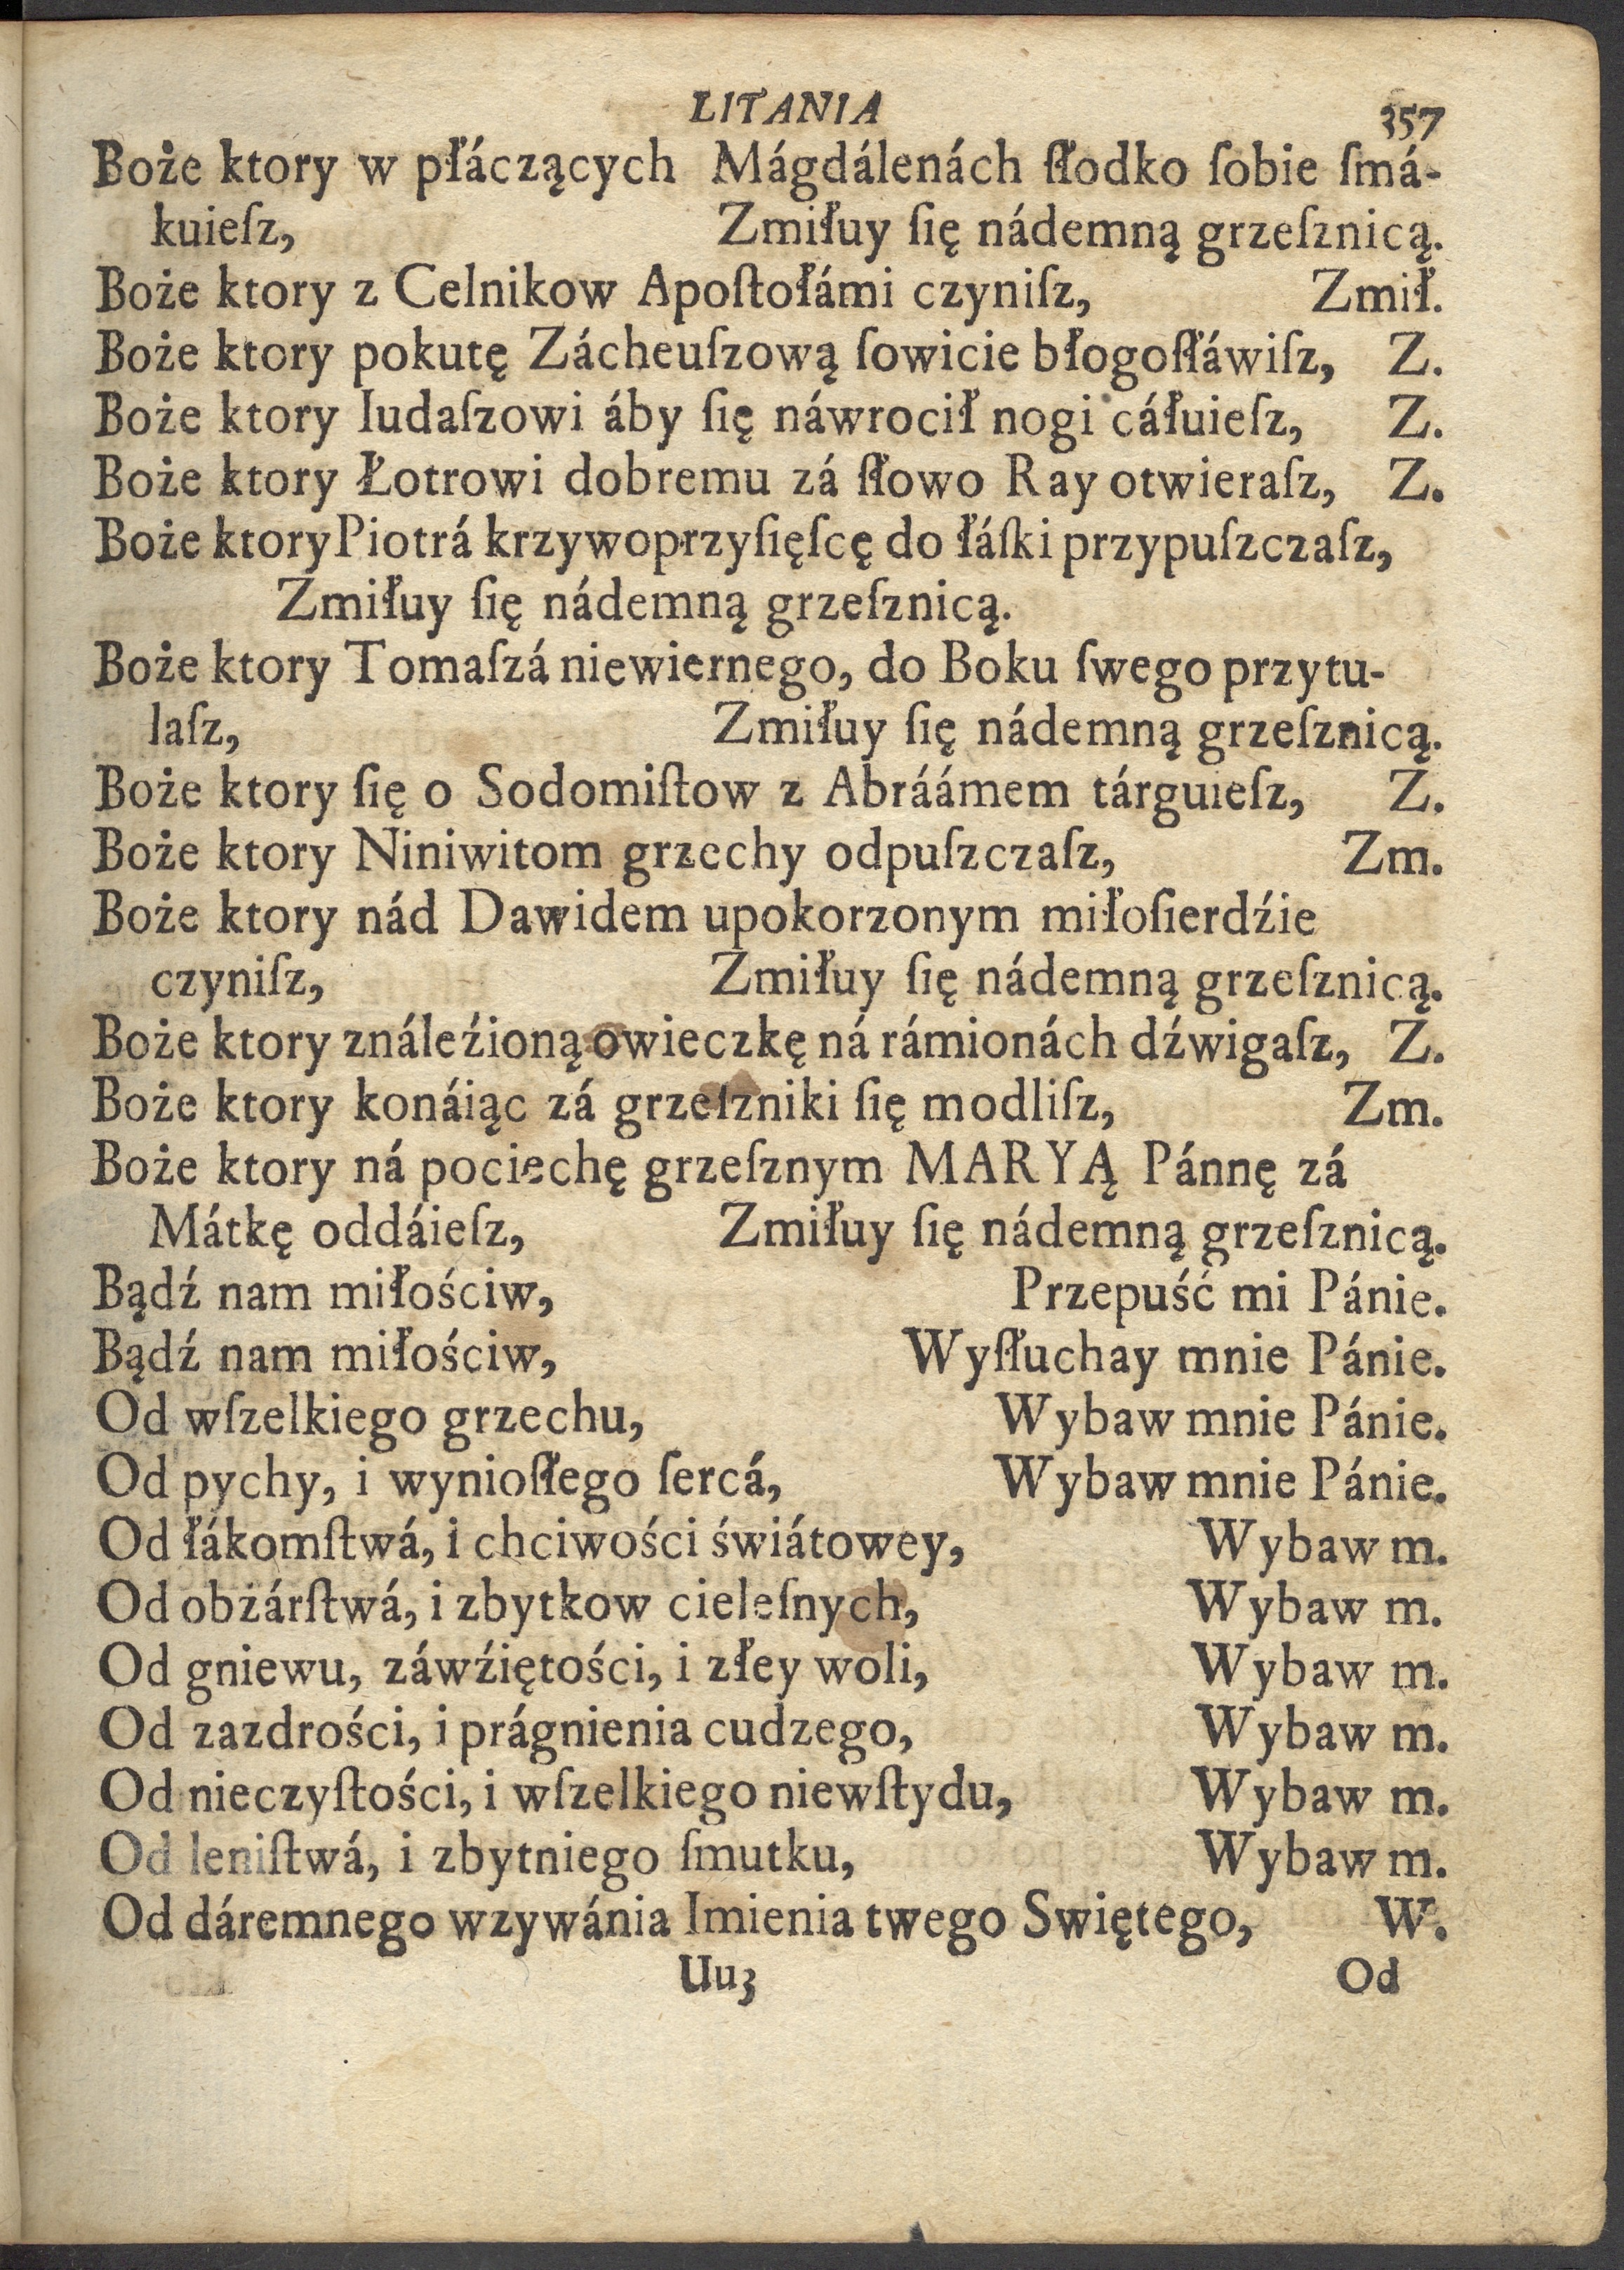 LITANIA 357
Boże ktory w płáczących Mágdálenách ſłodko ſobie ſmá-
kuieſz, Zmiłuy ſię nádemną grzeſznicą.
Boże ktory z Celnikow Apoſtołámi czyniſz, Zmił.
Boże ktory pokutę Zácheuſzową ſowicie błogoſłáwiſz, Z.
Boże ktory Iudaſzowi áby ſię náwrocił nogi cáłuieſz, Z.
Boże ktory Łotrowi dobremu zá ſłowo Ray otwieraſz, Z.
Boże ktory Piotrá krzywoprzyſięſcę do łáſki przypuſzczaſz,
Zmiłuy ſię nádemną grzeſznicą.
Boże ktory Tomaſzá niewiernego, do Boku ſwego przytu-
laſz, Zmiłuy ſię nádemną grzeſznicą.
Boże ktory ſię o Sodomiſtow z Abráámem tárguieſz, Z.
Boże ktory Niniwitom grzechy odpuſzczaſz, Zm.
Boże ktory nád Dawidem upokorzonym miłoſierdźie
czyniſz, Zmiłuy ſię nádemną grzeſznicą.
Boże ktory ználeźioną owieczkę ná rámionách dźwigaſz, Z.
Boże ktory konáiąc zá grzeſzniki ſię modliſz, Zm.
Boże ktory ná pociechę grzeſznym MARYĄ Pánnę zá
Mátkę oddáieſz, Zmiłuy ſię nádemną grzeſznicą.
Bądź nam miłościw, Przepuść mi Pánie.
Bądź nam miłościw, Wyſłuchay mnie Pánie.
Od wſzelkiego grzechu, Wybaw mnie Pánie.
Od pychy, i wynioſłego ſercá, Wybaw mnie Pánie.
Od łákomſtwá, i chciwości świátowey, Wybaw m.
Od obżárſtwá, i zbytkow cieleſnych, Wybaw m.
Od gniewu, záwźiętości, i złey woli, Wybaw m.
Od zazdrości, i prágnienia cudzego, Wybaw m.
Od nieczyſtości, i wſzelkiego niewſtydu, Wybaw m.
Od leniſtwá, i zbytniego ſmutku, Wybaw m.
Od dáremnego wzywánia Imienia twego Swiętego, W.
Uu3 Od